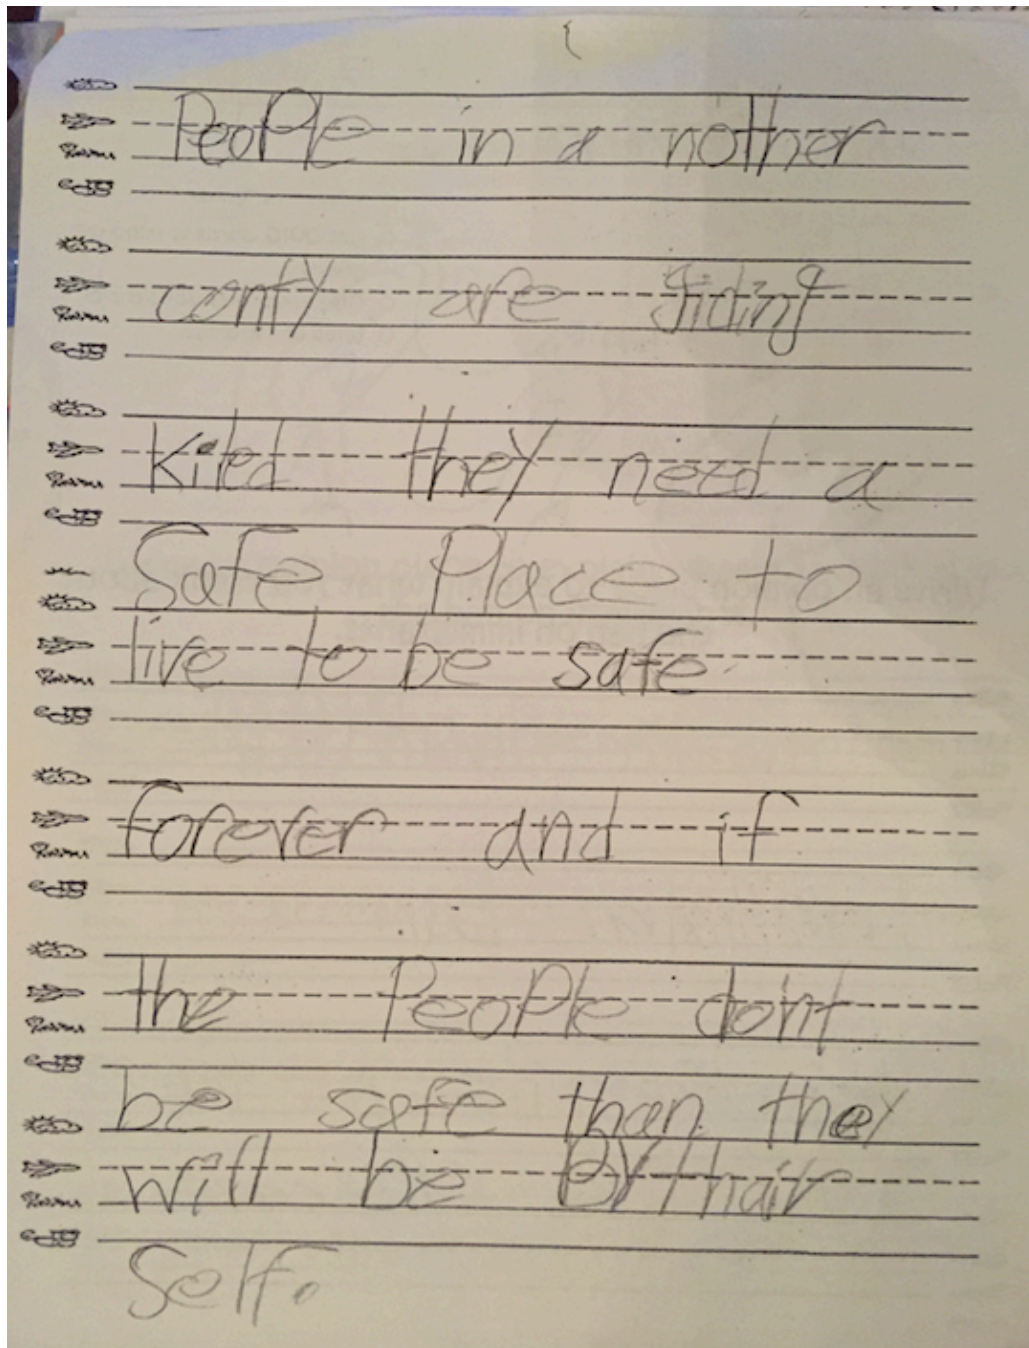 People in a nother
conty are giding
Killed they need a
Safe Place to
live to be safe
forever and if
the People don't
be safe than they
will be BY thair
Self.